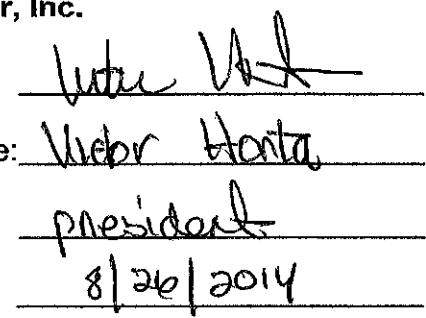 r, Inc.
e: Victor Horta
president
8/26/2014